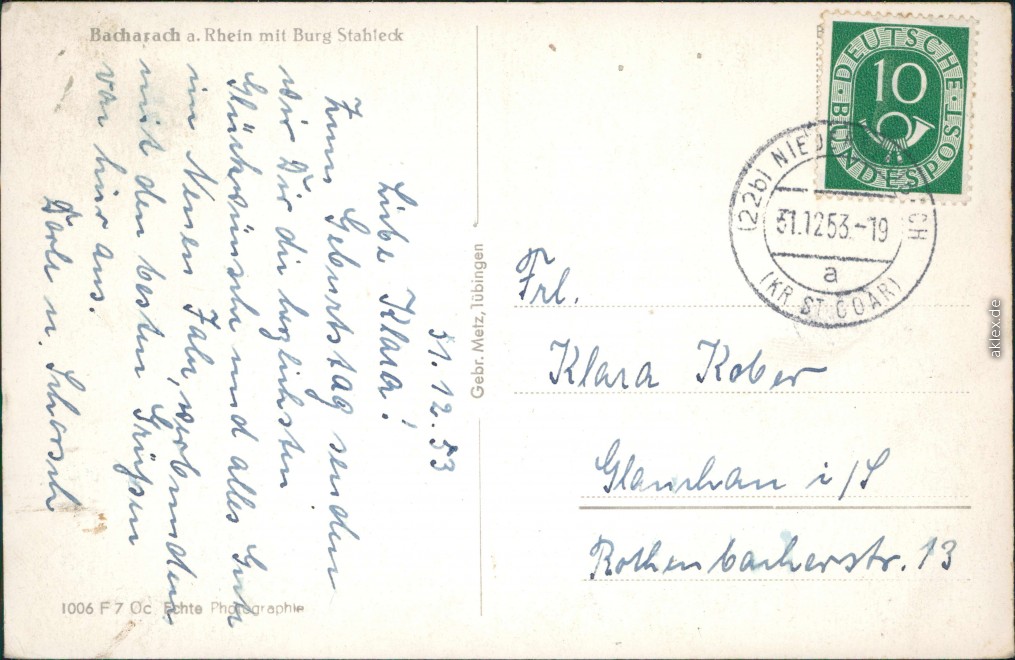 Bacharach a. Rhein mit Burg Stahleck
31.12.53
Liebe Klara!
Zum Geburtstag senden
wir Dir die herzlichsten
Glückwünsche und alles Gute
im Neuen Jahr, verbunden
mit den besten Grüßen
von hier aus.
Dorle u.
1006 F 7 Oc. Echte Photographie
Gebr. Metz, Tübingen
DEUTSCHE BUNDESPOST
10
(22b) NIED
31.12.53.-19
a
(KR. ST. GOAR)
Frl.
Klara Kober
Glauchau i/S
Rothenbacherstr. 13
aklex.de